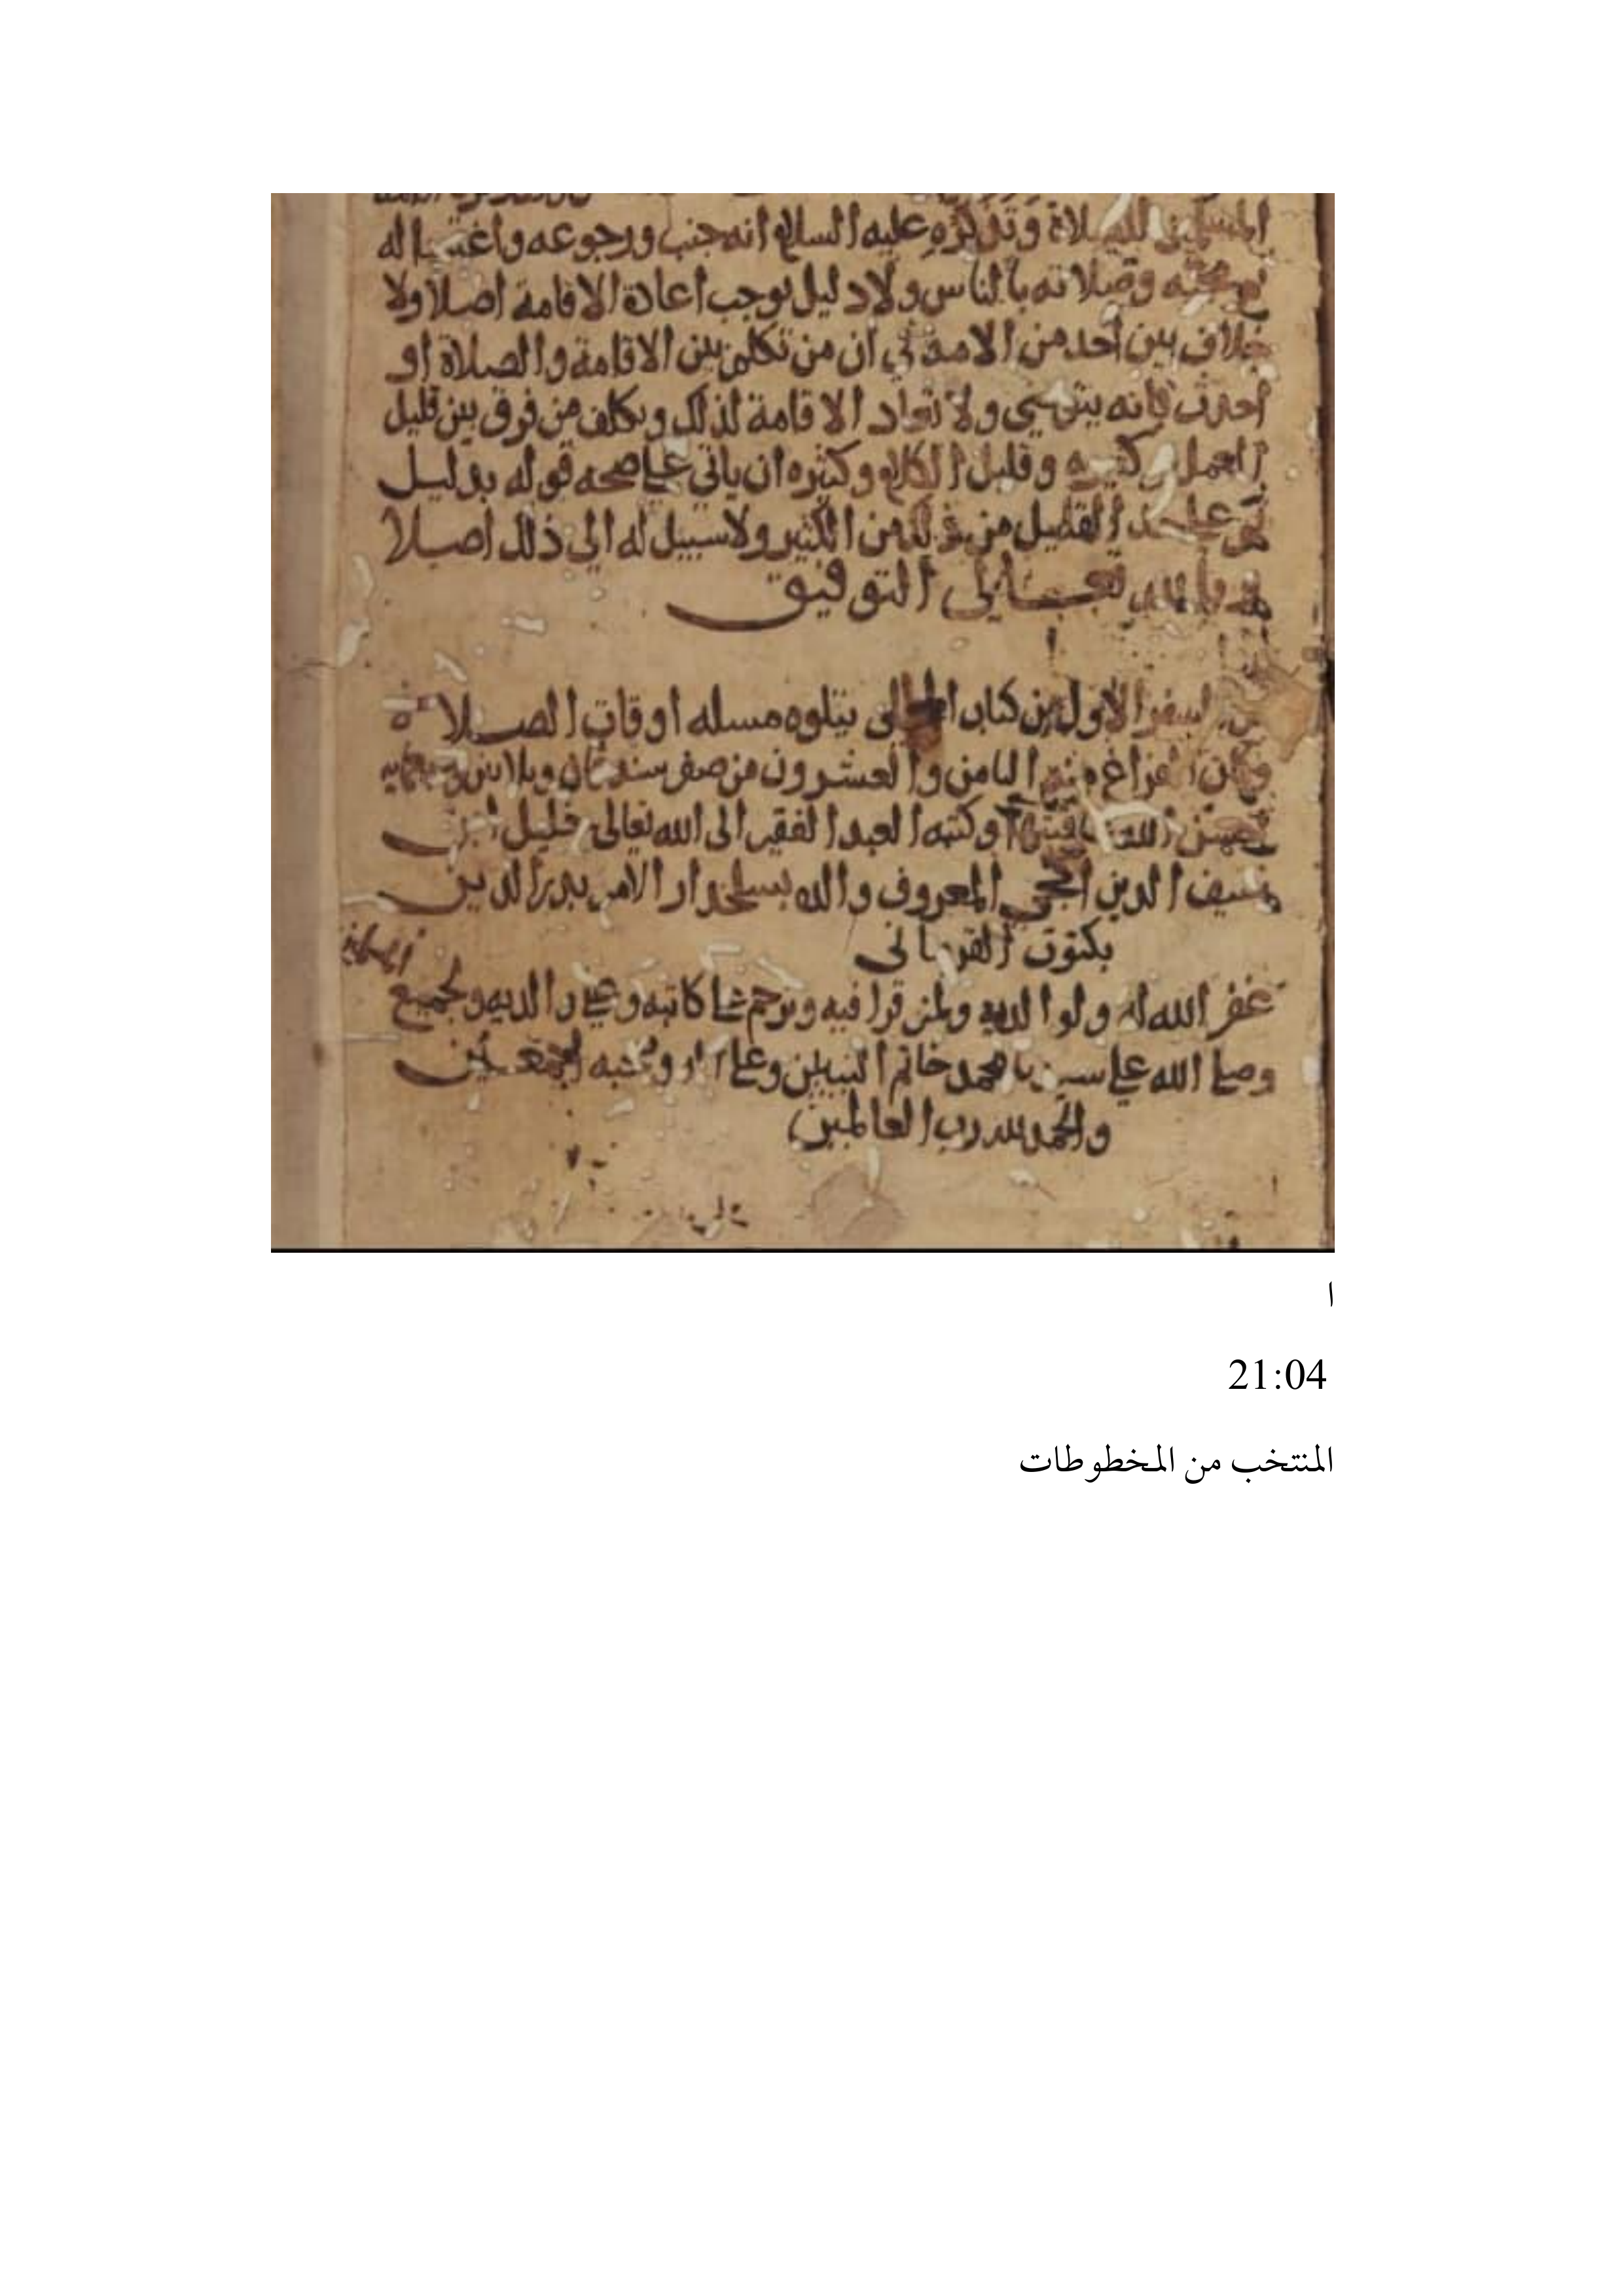 المسلمين للصلاة وتذكره عليه السلام انه جنب ورجوعه واغتساله
ومجيه وصلاته بالناس ولا دليل يوجب اعادة الاقامة اصلا ولا
خلاف بين احد من الامة في ان من تكلم بين الاقامة والصلاة او
احدث فانه يتوضي ولا تعاد الاقامة لذلك ويكلف من فرق بين قليل
العمل وكثيره وقليل الكلام وكثيره ان ياتي علي صحه قوله بدليل
ثم علي حد القليل من ذلك من الكثير ولا سبيل له الي ذلك اصلا
وبالله تعالي التوفيق
السفر الاول من كتاب المحلى يتلوه مسله اوقات الصلاة
وكان الفراغ منه الثامن والعشرون من صفر سنه ثمان وثلاثين وسبعمايه
الله وكتبه العبد الفقير الى الله تعالى خليل ابن
سيف الدين المعروف والده بسلحدار الامير بدر الدين
بكتوت القرماني
غفر الله له ولوالديه ولمن قرا فيه وترحم علي كاتبه وعلي والديه ولجميع المسلمين
وصلي الله علي سيدنا محمد خاتم النبيين وعلي اله وصحبه اجمعين
والحمد لله رب العالمين
ا
21:04
المنتخب من المخطوطات